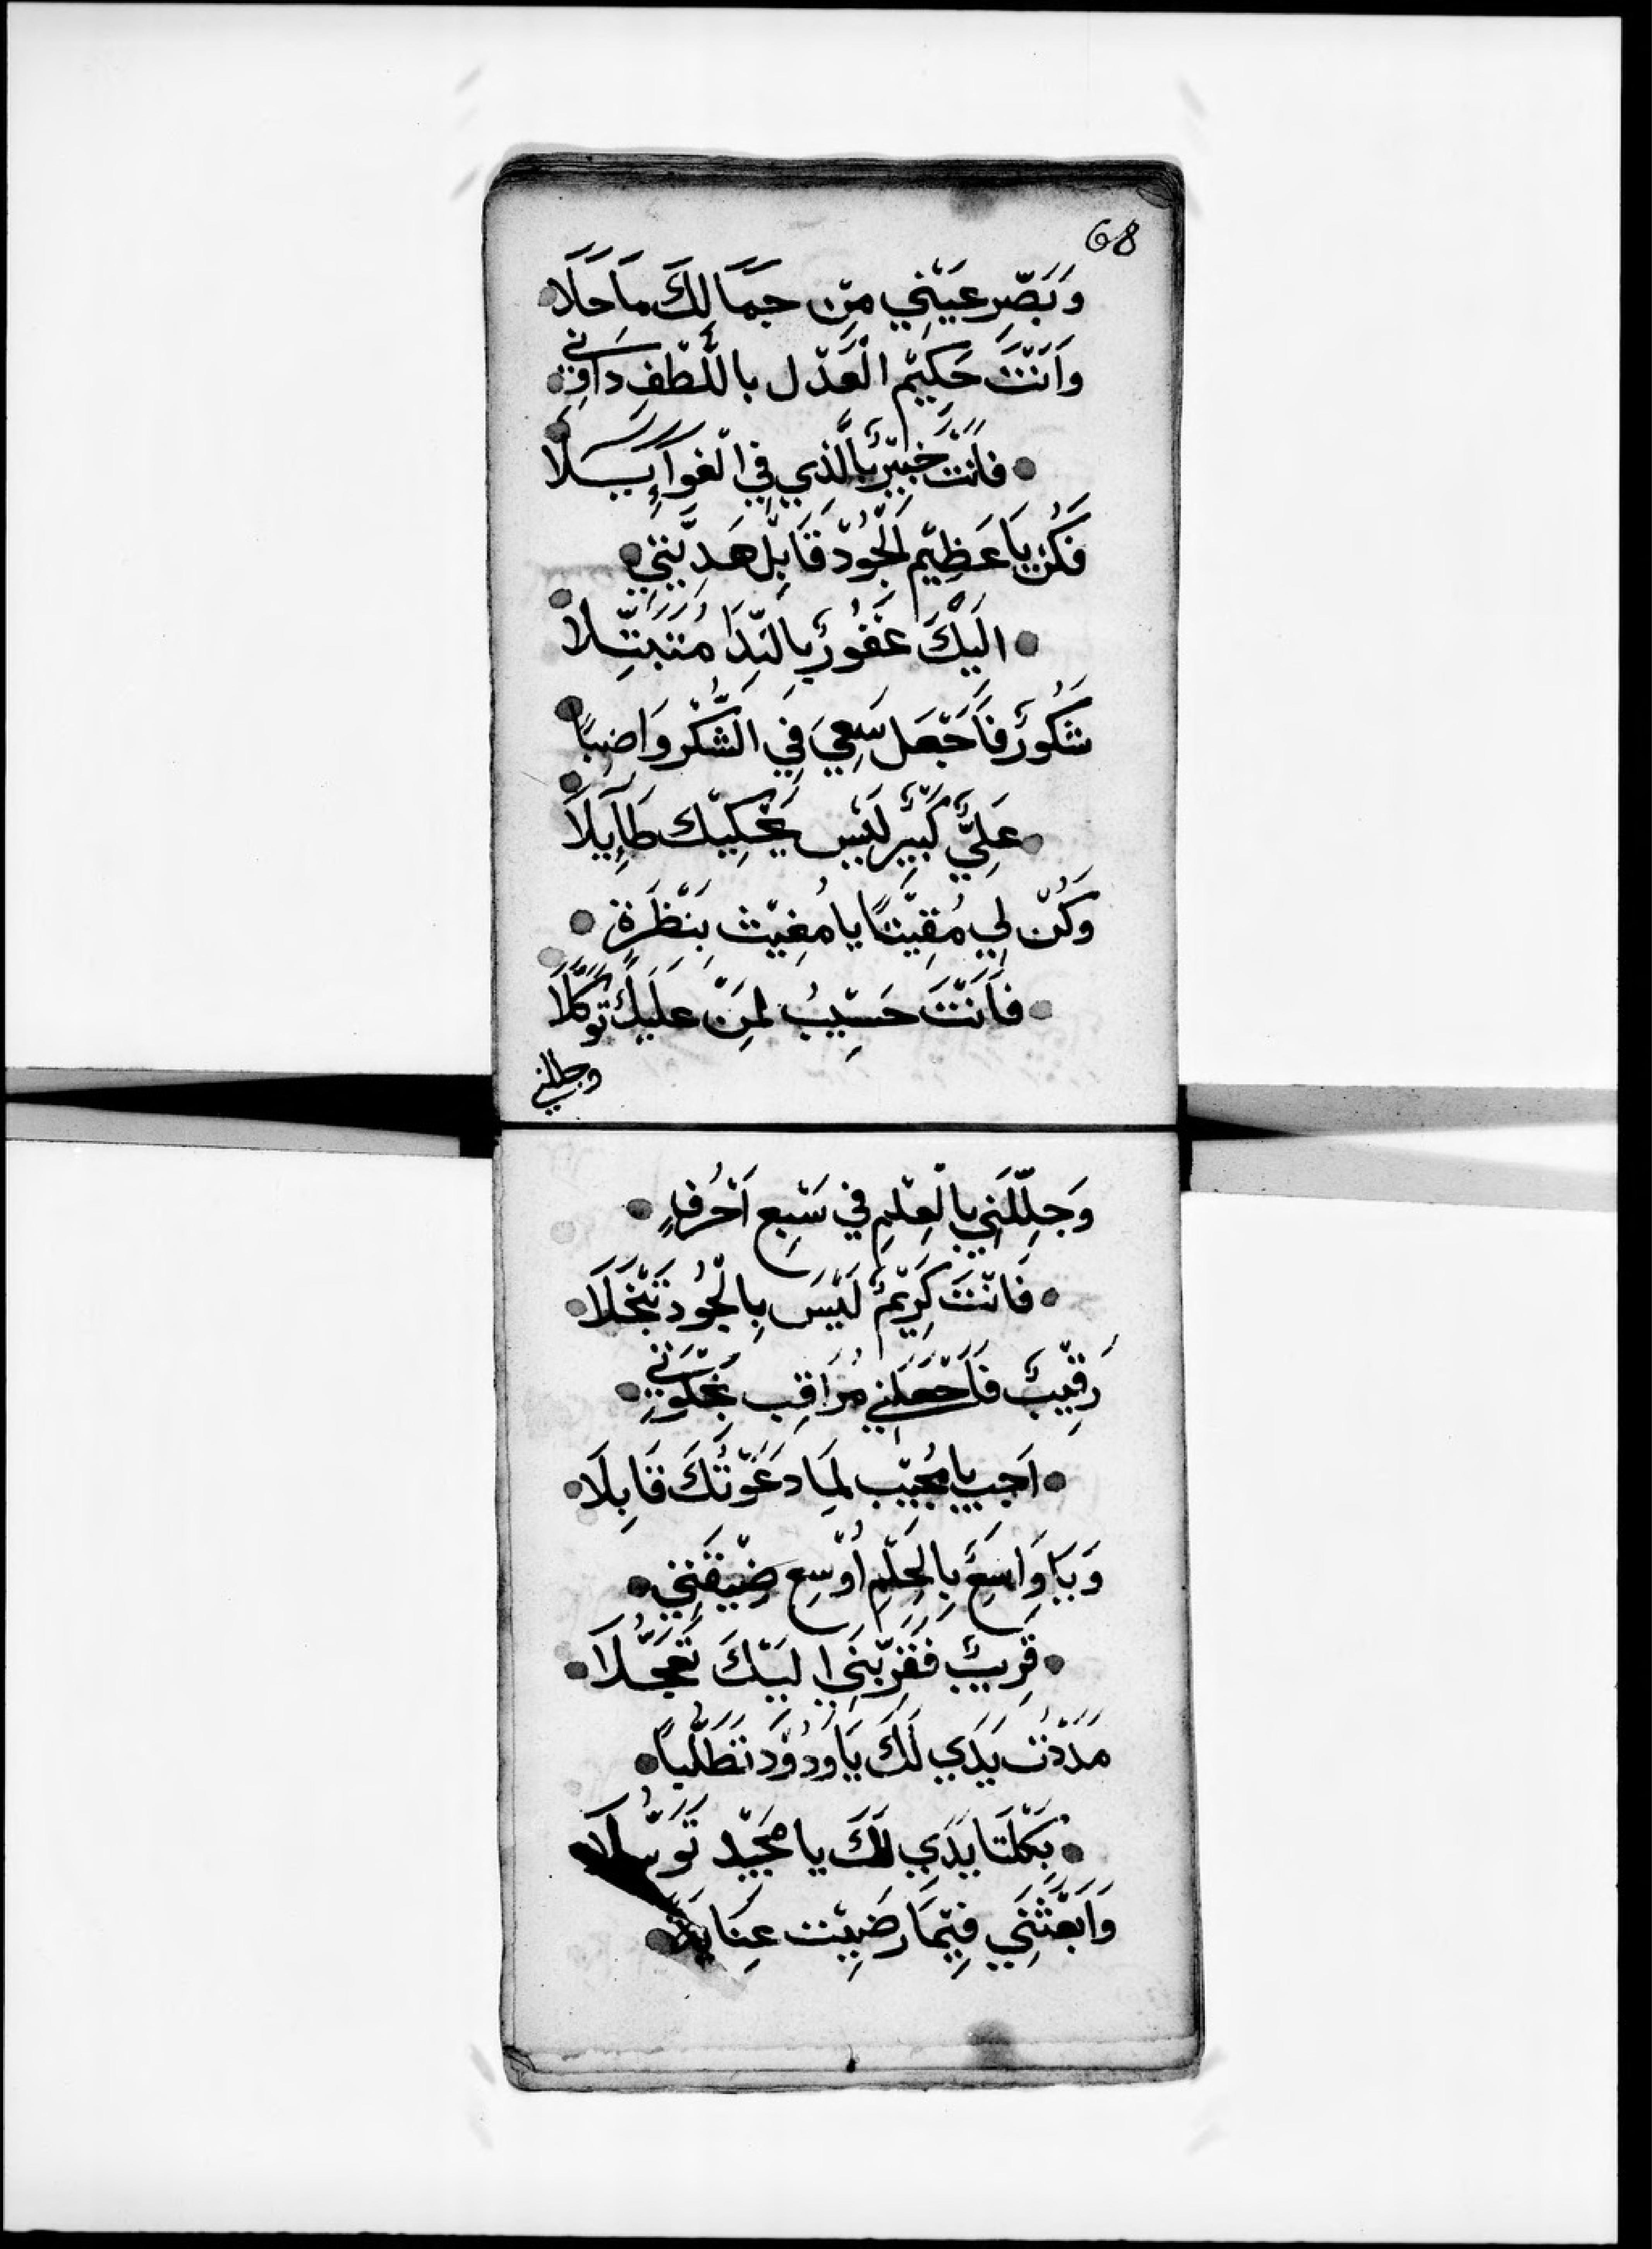 68
وَبَصِّر عَيْنِي مِنْ جَمَالِكَ مَا حَلَا
وَاَنْتَ حَكِيْم الْعَدْل بِاللُّطْفِ دَاوِنِي
فَاَنْتَ خَبِيْرٌ بِالَّذِي فِي
فَكُنْ يَا عَظِيْم الْجُوْد قَابِل
اِلَيْكَ غَفُوْرٌ بِالنِّدَا مُتَبَتِّلًا
شَكُوْرٌ فَاَجْعَل سَعِيَ فِي الشُّكْر وَاصِبًا
عَلِيٌّ كَبِيْرٌ لَيْسَ يَحْكِيْك طَايِلًا
وَكُنْ لِي مُقِيْتًا يا مُغِيْث بِنَظْرَةٍ
فَاَنْتَ حَسِيْبُ لِمَنْ عَلَيْكَ تَوَكَّلَا
وجللني
وَجَلِّلْنِي بِالْعِلْمِ فِي سَبْعِ اَحْرُفٍ
فَانْتَ كَرِيْمٌ لَيْسَ بِالْجُوْد تَبْخَلَا
رَقِيْبٌ فَاَجْعَلْنِي مُرَاقِب
اَجِب يا مُجِيْب لِمَا دَعَوْتُكَ قَابِلَا
وَيَا وَاسِعَ بِالْحِلْمِ اُوْسِع ضِيْقَتِي
قَرِيبٌ فَقَرِّبْنِي اِلَيْكَ تَعَجُّلَا
مَدَدْتُ يَدِي لَكَ يَا وَدُوْد تَطَلُّبًا
بِكِلْتَا يَدِي لَكَ يا مَجِيْد تَوَسُّلَا
وَابْعَثْنِي فِيْمَا رَضِيْت